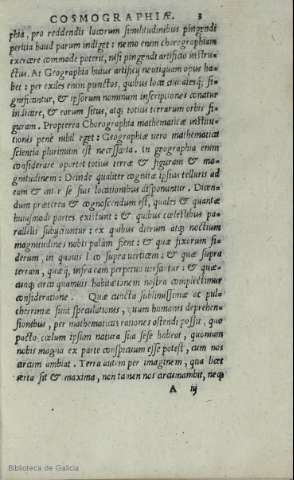 COSMOGRAPHIÆ. 3
phia, pro reddendis locorum similitudinibus pingendi
peritia haud parum indiget: nemo enim chorographiam
exercere commode poterit, nisi pingendi artificio instru-
ctus. At Geographia huius artificij neutiquam opus ha-
bet: per exiles enim punctos, quibus loca quæq; si-
gnificantur, & ipsorum nominum inscriptiones conatur
indicare, & eorum situs, atq; totius terrarum orbis fi-
guram. Propterea Chorographia mathematicæ institu-
tionis penè nihil eget: Geographiæ uero mathematicæ
scientia plurimum est necessaria. In geographia enim
considerare oportet totius terræ & figuram & ma-
gnitudinem: Deinde qualiter cognitæ ipsius telluris ad
eam & inter se sius locationibus disponuntur. Dicen-
dum præterea & cognoscendum est, quales & quantæ
huiusmodi partes existunt: & quibus cœlestibus pa-
rallelis subijciuntur: ex quibus dierum atq; noctium
magnitudines nobis palàm fient: & quæ fixorum si-
derum, in quouis loco supra uerticem: & quæ supra
terram, quæq; infra eam perpetuo uersantur: & quæ-
cunq; circa quamuis habitationem nostra complectimur
consideratione. Quæ cuncta sublimissimæ ac pul-
cherrimæ sunt speculationes, quum humanis deprehen-
sionibus, per mathematicas rationes ostendi possit, quo
pacto cœlum ipsum natura sua sese habeat, quoniam
nobis magna ex parte conspicuum esse potest, cum nos
arcum ambiat. Terra autem per imaginem, qua licet
uera sit & maxima, non tamen nos circumambit, neq;
A iij
Biblioteca de Galicia